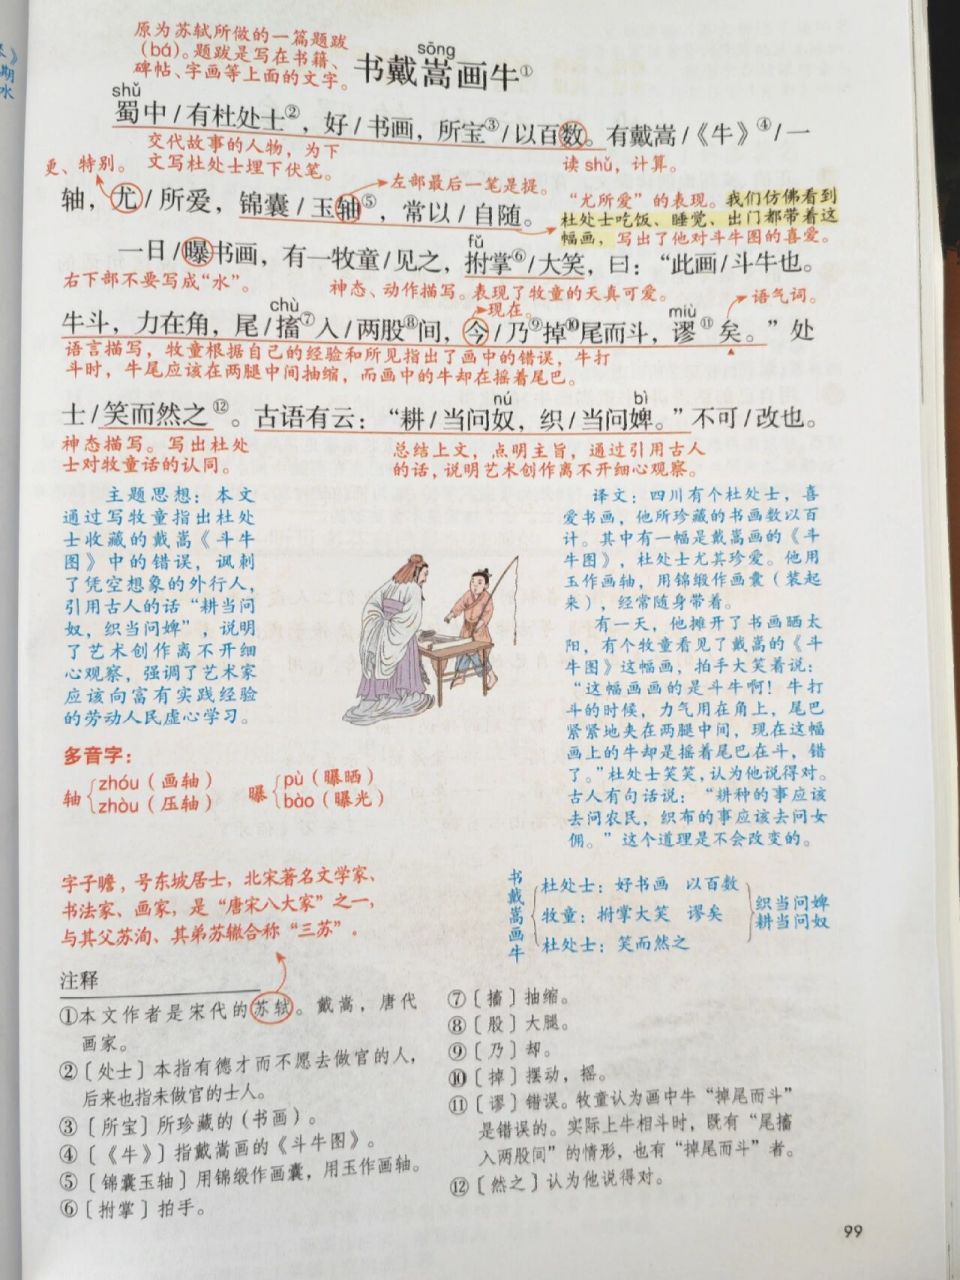 原为苏轼所做的一篇题跋
(bá)。题跋是写在书籍、
碑帖、字画等上面的文字。
sōng
书戴嵩画牛①
shǔ
蜀中/有杜处士②，好/书画，所宝③/以百数。有戴嵩/《牛》④/一
交代故事的人物，为下
文写杜处士埋下伏笔。
读shǔ，计算。
更、特别。
左部最后一笔是提。
轴，尤/所爱，锦囊/玉轴⑤，常以/自随。
“尤所爱”的表现。我们仿佛看到
杜处士吃饭、睡觉、出门都带着这
幅画，写出了他对斗牛图的喜爱。
fǔ
一日/曝书画，有一牧童/见之，拊掌⑥/大笑，曰：“此画/斗牛也。
右下部不要写成“水”。
神态、动作描写。表现了牧童的天真可爱。
语气词。
chù
现在。
miù
牛斗，力在角，尾/搐⑦入/两股⑧间，今/乃⑨掉⑩尾而斗，谬⑪矣。”处
语言描写，牧童根据自己的经验和所见指出了画中的错误，牛打
斗时，牛尾应该在两腿中间抽缩，而画中的牛却在摇着尾巴。
nú
bì
士/笑而然之⑫。古语有云：“耕/当问奴，织/当问婢。”不可/改也。
神态描写。写出杜处
士对牧童话的认同。
总结上文，点明主旨，通过引用古人
的话，说明艺术创作离不开细心观察。
主题思想：本文
通过写牧童指出杜处
士收藏的戴嵩《斗牛
图》中的错误，讽刺
了凭空想象的外行人，
引用古人的话“耕当问
奴，织当问婢”，说明
了艺术创作离不开细
心观察，强调了艺术家
应该向富有实践经验
的劳动人民虚心学习。
译文：四川有个杜处士，喜
爱书画，他所珍藏的书画数以百
计。其中有一幅是戴嵩画的《斗
牛图》，杜处士尤其珍爱。他用
玉作画轴，用锦缎作画囊（装起
来），经常随身带着。
有一天，他摊开了书画晒太
阳，有个牧童看见了戴嵩的《斗
牛图》这幅画，拍手大笑着说：
“这幅画画的是斗牛啊！牛打
斗的时候，力气用在角上，尾巴
紧紧地夹在两腿中间，现在这幅
画上的牛却是摇着尾巴在斗，错
了。”杜处士笑笑，认为他说得对。
古人有句话说：“耕种的事应该
去问农民，织布的事应该去问女
佣。”这个道理是不会改变的。
多音字：
轴
zhóu（画轴）
zhòu（压轴）
曝
pù（曝晒）
bào（曝光）
字子瞻，号东坡居士，北宋著名文学家、
书法家、画家，是“唐宋八大家”之一，
与其父苏洵、其弟苏辙合称“三苏”。
书戴嵩画牛
杜处士：好书画 以百数
牧童：拊掌大笑 谬矣
杜处士：笑而然之
织当问婢
耕当问奴
注释
①本文作者是宋代的苏轼。戴嵩，唐代
画家。
②〔处士〕本指有德才而不愿去做官的人，
后来也指未做官的士人。
③〔所宝〕所珍藏的（书画）。
④〔《牛》〕指戴嵩画的《斗牛图》。
⑤〔锦囊玉轴〕用锦缎作画囊，用玉作画轴。
⑥〔拊掌〕拍手。
⑦〔搐〕抽缩。
⑧〔股〕大腿。
⑨〔乃〕却。
⑩〔掉〕摆动，摇。
⑪〔谬〕错误。牧童认为画中牛“掉尾而斗”
是错误的。实际上牛相斗时，既有“尾搐
入两股间”的情形，也有“掉尾而斗”者。
⑫〔然之〕认为他说得对。
99
期
水